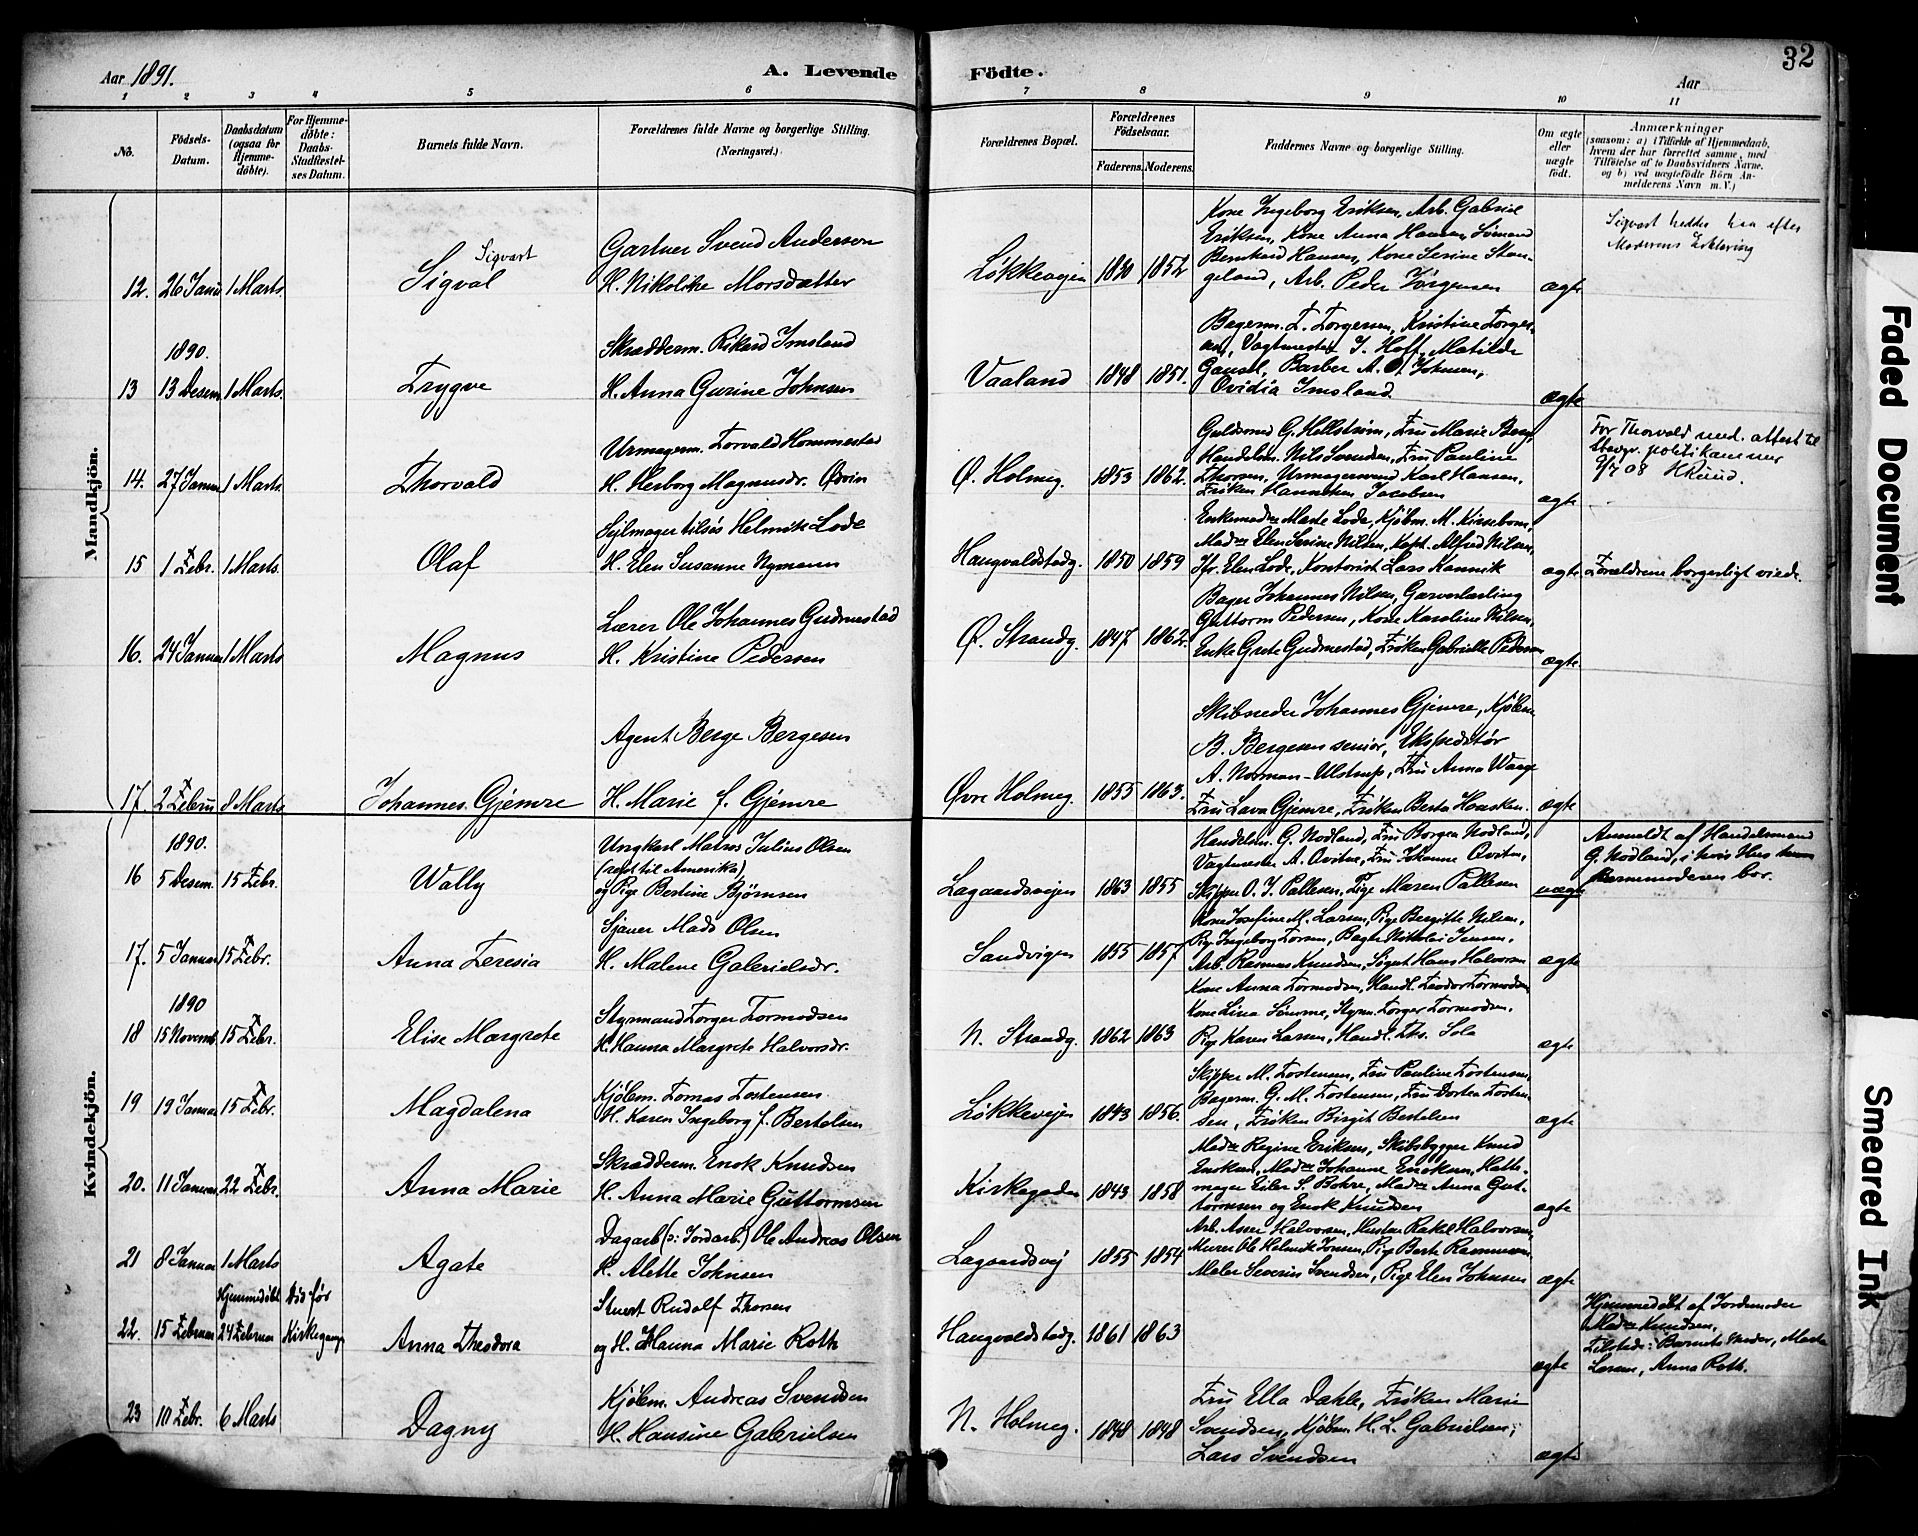 Aar 1891.
A. Levende Födte.
32
Aar
1 2 3 4 5 6 7 8 9 10 11
No.
Födsels-Datum.
Daabsdatum (ogsaa för Hjemme-döbte).
For Hjemme-døbte: Daabs-Stadfæstel-ses Datum.
Barnets fulde Navn.
Forældrenes fulde Navne og borgerlige Stilling. (Næringsvei.)
Forældrenes Bopæl.
Forældrenes Födselsaar.
Faderens. Moderens.
Faddernes Navne og borgerlige Stilling.
Om ægte eller uægte födt.
Anmærkninger
(saasom: a) i Tilfælde af Hjemmedaab, hvem der har forrettet samme, med Tilföielse af to Daabsvidners Navne, og b) ved uægtefödte Börn An-melderens Navn m. V.)
Mandkjön.
12. 26 Janu 1 Marts.
Sigvart
Sigval
Gartner Svend Anderson
H. Nikolike Morsdatter
Løkkeveien 1852
Kone Ingeborg Eriksen, Arb. Gabriel
Eriksen, Kone Anna Hansen, Sømand
Bernhard Hansen, Kone Serine Stan-
geland, Arb. Peder Jörgensen
ægte
Sigvart hedder han efter
Moderens Erklæring
1890.
13 13 Desem 1 Marts.
Trygve
Skrædderm. Rikard Imsland
H. Anna Gurine Johnsen
Vaaland 1848 1851.
Bagerm. T. Torgersen, Kristine Torger-
sen, Vagtmester J. Hoff, Matilde
Gausel, Barber A. O. Johnsen,
Ovidia Imsland
ægte
14. 27 Januar 1 Marts.
Thorvald
Urmagerm. Torvald Hommestad
H. Herborg Magnusdr. Ødvin
Ø. Holmeg. 1853 1862.
Guldsmed G. Hellstrøm, Fru Marie Berg,
Handelsm. Nils Svendsen, Fru Pauline
Thorsen, Urmagersvend Karl Hansen,
Frøken Hanneken Jacobsen
ægte
For Thorvald med. attest til
Stavgr. politikammer
9/7 08 HRuud.
15 1 Febr. 1 Marts.
Olaf
Sejlmager tilsøs Helmik Lode
H. Elen Susanne Nymann
Haugvaldstadg. 1850 1859
Enkemadm Marte Lode, Kjøbm. M. Kisseboru,
Madm Elen Serine Nilsen, Kapt. Alfred Nilsen,
Jfr. Elen Lode, Kontorist Lars Kannik
ægte
Forældrene borgerligt viede.
16. 24 Januar 1 Marts
Magnus
Lærer Ole Johannes Gudmestad
H. Kristine Pedersen
Ø. Strandg. 1847 1862.
Bager Johannes Nilsen, Garverlærling
Guttorm Pedersen, Kone Karoline Nilsen,
Enke Grete Gudmestad, Frøken Gabrielle Pedersen
ægte
17. 2 Febru 8 Marts
Johannes Gjemre
Agent Berge Bergesen
H. Marie f. Gjemre
Øvre Holmeg. 1855 1863.
Skibsreder Johannes Gjemre, Kjøbm
B. Bergesen senior, Ekspeditør
A. Norman-Ulstrup, Fru Anna Waage
Fru Lava Gjemre, Frøken Berta Hausken.
ægte
Kvindekjön.
1890.
16 5 Desem. 15 Febr.
Wally
Ungkarl Matros Julius Olsen
(rejst til Amerika)
og Pige Bertine Bjørnsen
Lagaardsveien 1863 1855
Handelsm. G. Nodland, Fru Borgea Nodland,
Vagtmester A. Qvitne, Fru Johanne Qvitne,
Skipper O. J. Pallesen, Pige Maren Pallesen
uægte
Anmeldt af Handelsmand
G. Nodland, i hvis Hus
Barnemoderen bor.
17. 5 Januar 15 Febr.
Anna Teresia
Sjauer Mads Olsen
H. Malene Gabrielsdr.
Sandvigen 1855 1857
Kone Josefine M. Larsen, Pige Bergitte Nilsen,
Pige Ingeborg Torsen, Bager Nikolai Jensen,
Arb. Rasmus Knudsen, Søgut Hans Halvorsen
ægte
1890
18 15 Novemb. 15 Febr.
Elise Margrete
Styrmand Torger Tormodsen
H. Hanna Margrete Halvorsdr.
N. Strandg. 1862 1863
Kone Anna Tormodsen, Handl. Teodor Tormodsen,
Kone Lina Sømme, Styrm. Torger Tormodsen,
Pige Karen Larsen, Handl. Ths. Sola
ægte
19 19 Januar 15 Febr.
Magdalena
Kjøbm. Tomas Tostensen
H. Karen Ingeborg f. Bertelsen
Løkkeveien 1843 1856.
Skipper M. Tostensen, Fru Pauline Tostensen,
Bagerm. G. M. Tostensen, Fru Dortea Tosten-
sen, Frøken Birgit Bertelsen
ægte
20. 11 Januar 22 Febr.
Anna Marie
Skrædderm. Enok Knudsen
H. Anna Marie Guttormsen
Kirkegaden 1843 1858
Madm Regine Eriksen, Skibsbygger Knud
Enoksen, Madm Johanne Enoksen, Hatte-
mager Eiler S. Bohre, Madm Anna Gut-
tormsen og Enok Knudsen
ægte
21 8 Januar 1 Marts
Agate
Dagarb. (o: Jordarb.) Ole Andreas Olsen
H. Alette Johnsen
Lagaardsvej 1855 1854
Arb. Asser Halvorsen, Hustru Rakel Halvorsen,
Murer Ole Helmik Jonsen, Pige Berta Rasmussen
Maler Severin Svendsen, Pige Elen Johnsen
ægte
22. 15 Februar
Hjemmedøbt 24 Februar
Død før Kirkegang
Anna Theodora
Stuert Rudolf Thorsen
og H. Hanna Marie Roth
Haugvaldstadg. 1861 1863
ægte
Hjemmedøbt af Jordemoder
Madm Knudsen.
Tilstede: Barnets Moder, Marta
Larsen, Anna Roth.
23 10 Febr. 6 Marts
Dagny
Kjøbm. Andreas Svendsen
H. Hansine Gabrielsen
N. Holmeg. 1848 1848
Fru Ella Dahle, Frøken Marie
Svendsen, Kjøbm. H. L. Gabrielsen,
Lars Svendsen
ægte
Faded Document
Smeared Ink